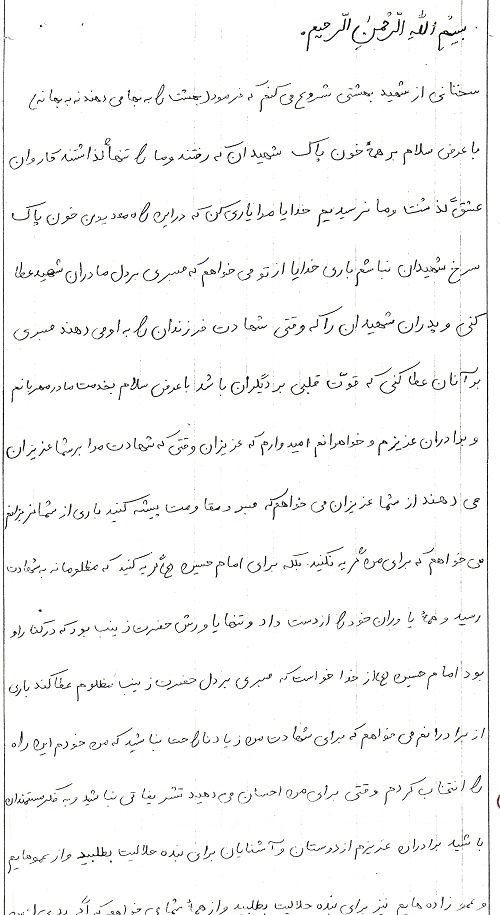 بِسْمِ اللهِ الرَّحْمٰنِ الرَّحِیمِ.
سخنانی از شهید بهشتی شروع می کنم که فرمود (بهشت را به بها می دهند نه به بهانه)
با عرض سلام بر همهٔ خون پاک شهیدان که رفتند و ما را تنها گذاشتند کاروان
عشق گذشت و ما نرسیدیم خدایا مرا یاری کن که در این راه مدیون خون پاک
سرخ شهیدان نباشم باری خدایا از تو می خواهم که صبری بر دل مادران شهید عطا
کنی و پدران شهیدان را که وقتی شهادت فرزندان را به او می دهند صبری
بر آنان عطا کنی که قوّت قلبی بر دیگران باشد با عرض سلام بخدمت مادر مهربانم
و برادران عزیزم و خواهرانم امیدوارم که عزیزان وقتی که شهادت مرا بر شما عزیزان
می دهند از شما عزیزان می خواهم که صبر و مقاومت پیشه کنید باری از شما عزیزانم
می خواهم که برای من گریه نکنید بلکه برای امام حسین (ع) گریه کنید که مظلومانه به شهادت
رسید و همهٔ یاوران خود را از دست داد و تنها یاورش حضرت زینب بود که در کنار او
بود امام حسین (ع) از خدا خواست که صبری بر دل حضرت زینب مظلوم عطا کند باری
از برادرانم می خواهم که برای شهادت من زیاد ناراحت نباشید که من خودم این راه
را انتخاب کردم وقتی برای من احسان می دهید تشریفاتی نباشید و به فکر مستمندان
باشید برادران عزیزم از دوستان و آشنایان برای بنده حلالیت بطلبید و از عموهایم
و عمو زاده هایم نیز برای بنده حلالیت بطلبید و از همهٔ شما می خواهم که اگر بدی از